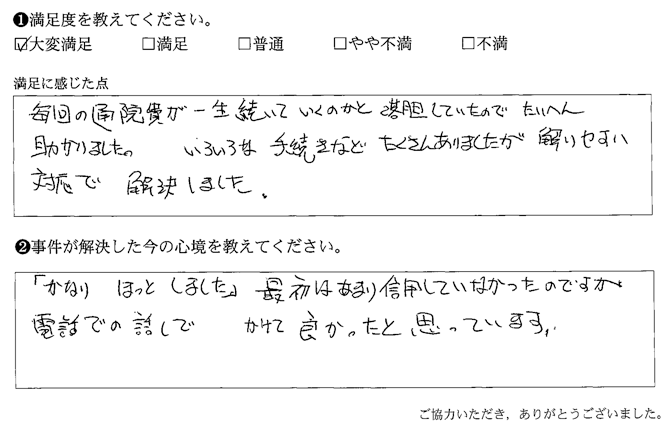 ❶満足度を教えてください。
☑大変満足 □満足 □普通 □やや不満 □不満
満足に感じた点
毎回の通院費が一生続いていくのかと落胆していたので たいへん
助かりました。 いろいろな 手続きなど たくさんありましたが 解りやすい
対応で 解決しました。
❷事件が解決した今の心境を教えてください。
「かなり ほっと しました」 最初はあまり信用していなかったのですが、
電話での 話しで かけて 良かったと 思っています。
ご協力いただき，ありがとうございました。